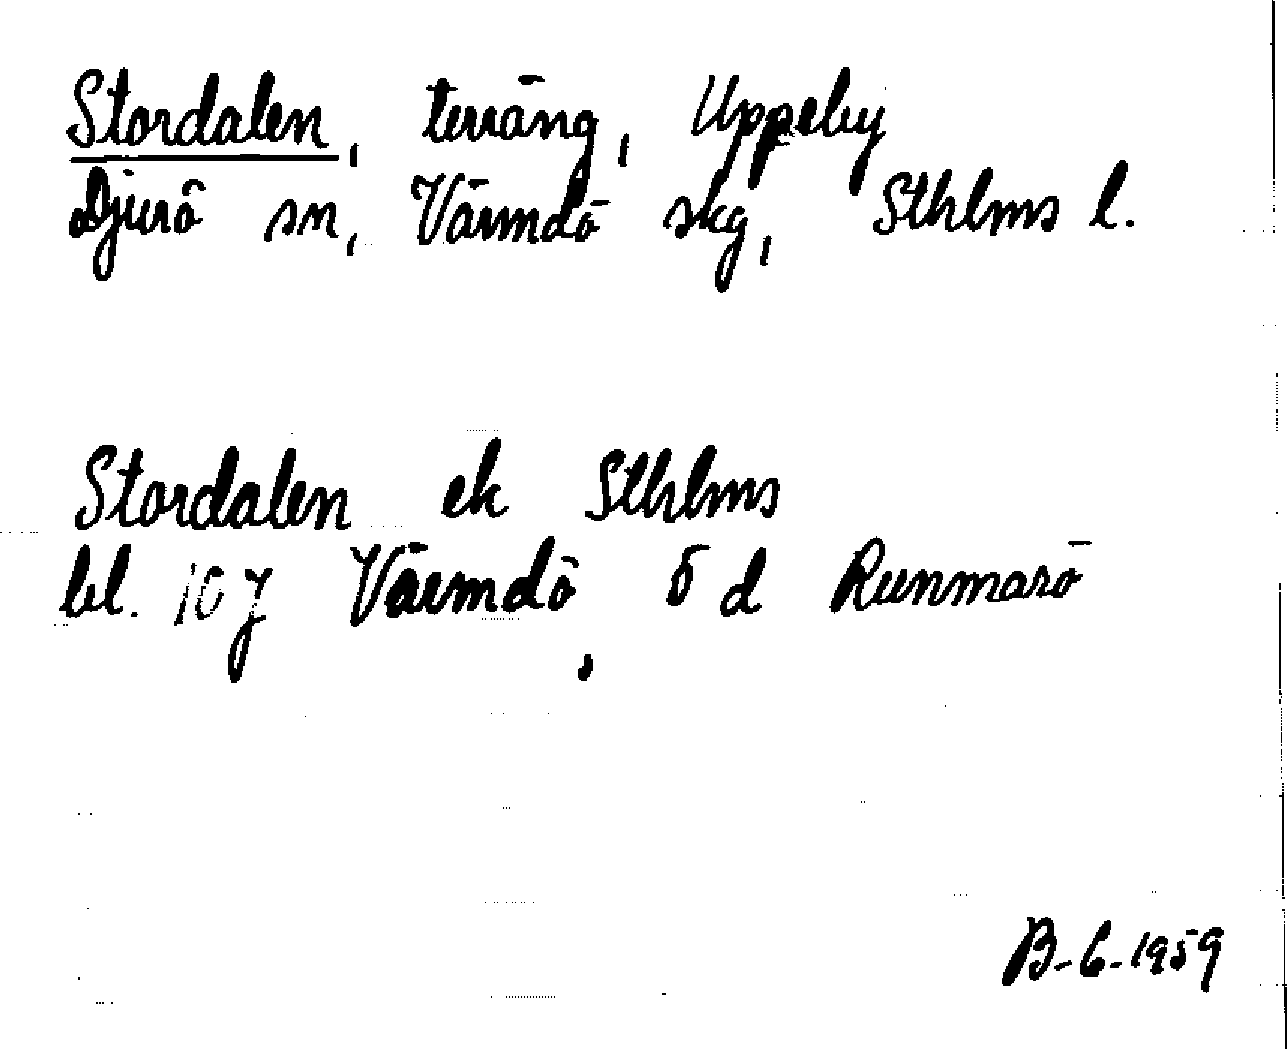 Stordalen, terräng, Uppeby
Djurö sn, Värmdö skg, Sthlms l.
Stordalen ek Sthlms
bl. 107 Värmdö 5 d Runmarö
B-6-1959